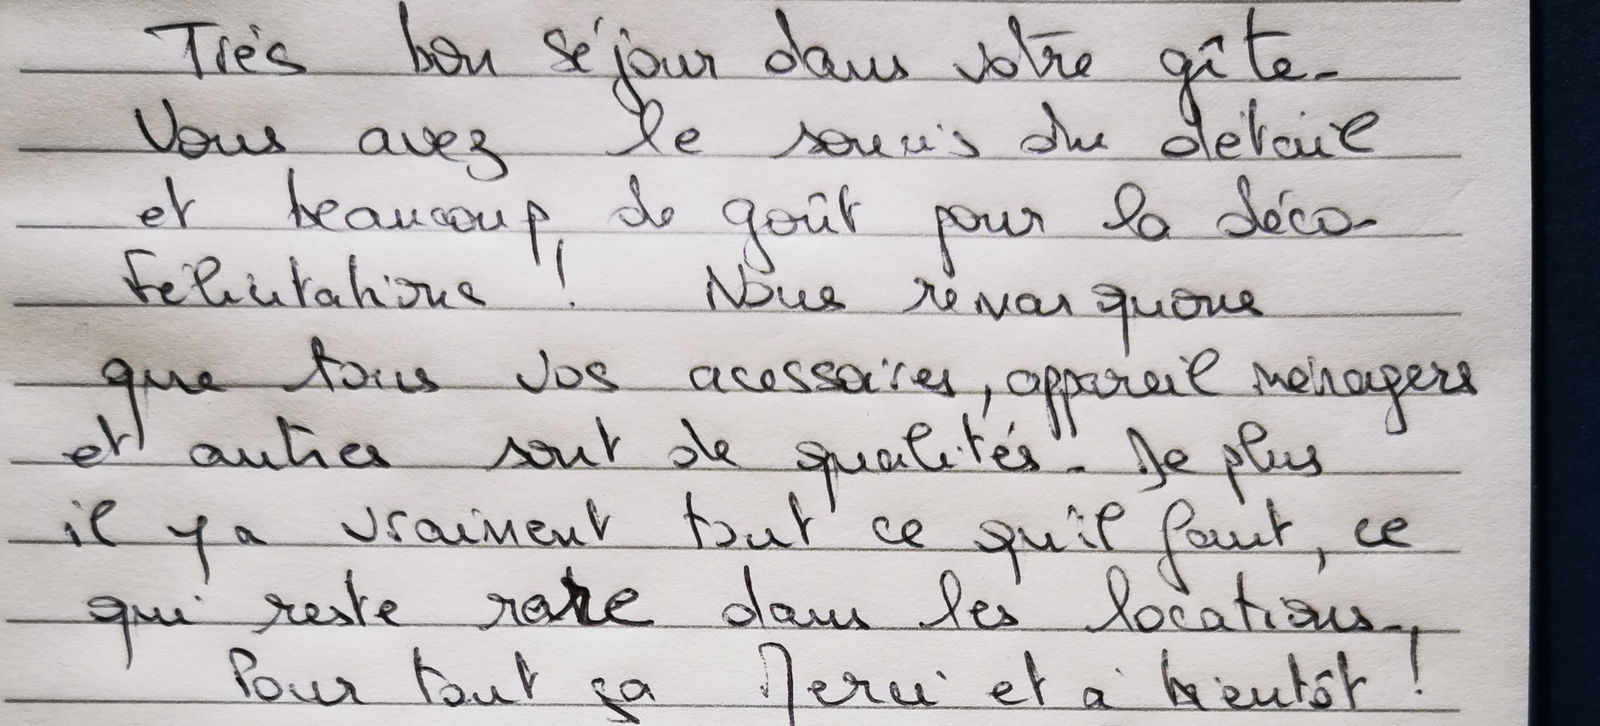 Très bon séjour dans votre gîte.
Vous avez le soucis du détail
et beaucoup de goût pour la déco.
Félicitations ! Nous remarquons
que tous vos acessoires, appareil ménagers
et autres sont de qualités. De plus
il y a vraiment tout ce qu'il faut, ce
qui reste rare dans les locations.
Pour tout ça Merci et à bientôt !